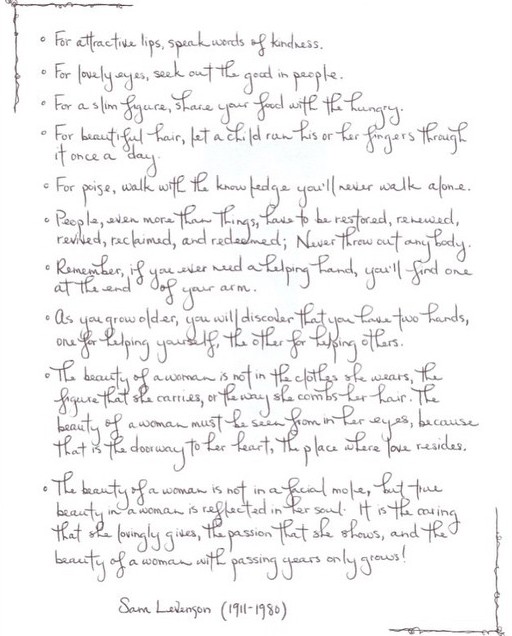 For attractive lips, speak words of kindness.
For lovely eyes, seek out the good in people.
For a slim figure, share your food with the hungry.
For beautiful hair, let a child run his or her fingers through
it once a day.
For poise, walk with the knowledge you'll never walk alone.
People, even more than things, have to be restored, renewed,
revived, reclaimed, and redeemed; Never throw out anybody.
Remember, if you ever need a helping hand, you'll find one
at the end of your arm.
As you grow older, you will discover that you have two hands,
one for helping yourself, the other for helping others.
The beauty of a woman is not in the clothes she wears, the
figure that she carries, or the way she combs her hair. The
beauty of a woman must be seen from in her eyes, because
that is the doorway to her heart, the place where love resides.
The beauty of a woman is not in a facial mole, but true
beauty in a woman is reflected in her soul. It is the caring
that she lovingly gives, the passion that she shows, and the
beauty of a woman with passing years only grows!
Sam Levenson (1911-1980)